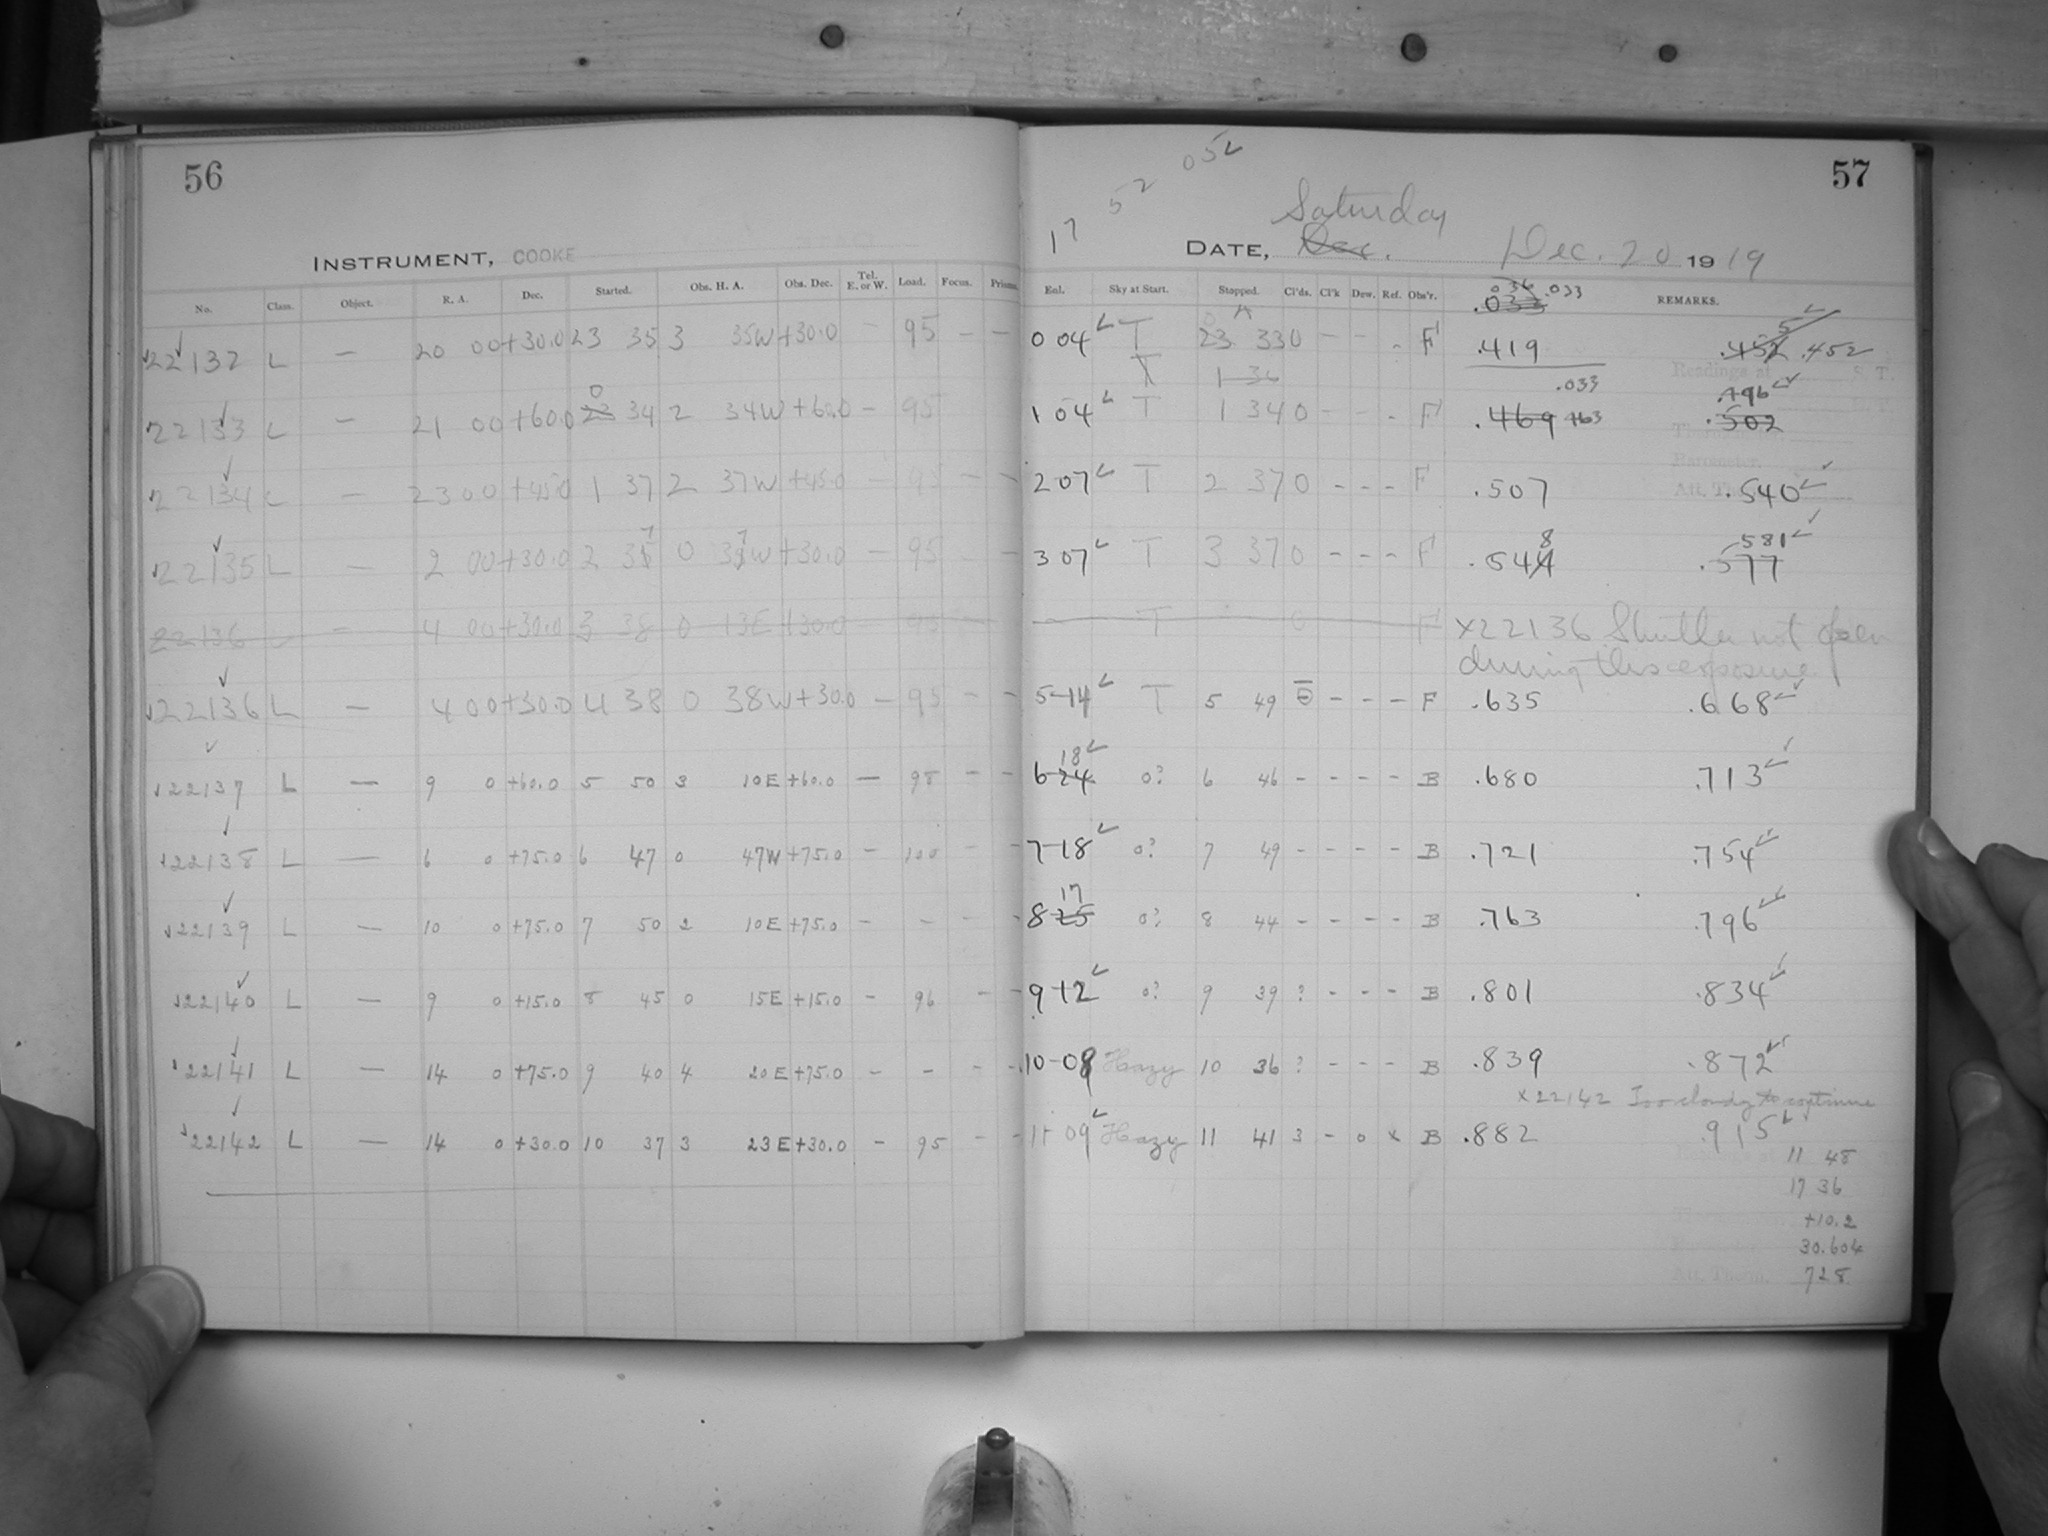 56
INSTRUMENT, COOKE
No. Class. Object. R. A. Dec. Started. Obs. H. A. Obs. Dec. Tel. E. or W. Load. Focus.
22132 L — 20 00 +30.0 23 35 3 35W +30.0 — 95 — —
22133 L — 21 00 +60.0 0 34 2 34W +60.0 — 95
22134 L — 23 00 +45.0 1 37 2 37W +45.0 — 95 — —
22135 L — 2 00 +30.0 2 37 0 37W +30.0 — 95 —
22136 — 4 00 +30.0 3 38 0 13E +30.0 95
22136 L — 4 00 +30.0 4 38 0 38W +30.0 — 95 — —
22137 L — 9 0 +60.0 5 50 3 10E +60.0 — 98 — —
22138 L — 6 0 +75.0 6 47 0 47W +75.0 — 100 — —
22139 L — 10 0 +75.0 7 50 2 10E +75.0 — — — —
22140 L — 9 0 +15.0 8 45 0 15E +15.0 — 96 — —
22141 L — 14 0 +75.0 9 40 4 20E +75.0 — — — —
22142 L — 14 0 +30.0 10 37 3 23E +30.0 — 95 — —
57
17 52 05
Saturday
DATE, Dec. 20 1919
Sky at Start. Stopped. Cl'ds. Cl'k Dew. Ref. Obs'r. REMARKS.
.033
0 04 T 23 33 0 — — F .419 .452
T 1 34 .033
.496
1 04 T 1 34 0 — — F .469 463 .502
2 07 T 2 37 0 — — — F .507 .540
.581
3 07 T 3 37 0 — — — F .548 .577
T 0 F x22136 Shutter not open
during this exposure
5-14 T 5 49 — — — F .635 .668
18
6-24 0? 6 46 — — — — B .680 .713
7-18 0? 7 49 — — — — B .721 .754
17
8 25 0? 8 44 — — — — B .763 .796
9-12 0? 9 39 ? — — — B .801 .834
10-09 Hazy 10 36 ? — — — B .839 .872
x22142 Too cloudy to continue
11 09 Hazy 11 41 3 — 0 x B .882 .915
11 48
17 36
+10.2
30.604
728